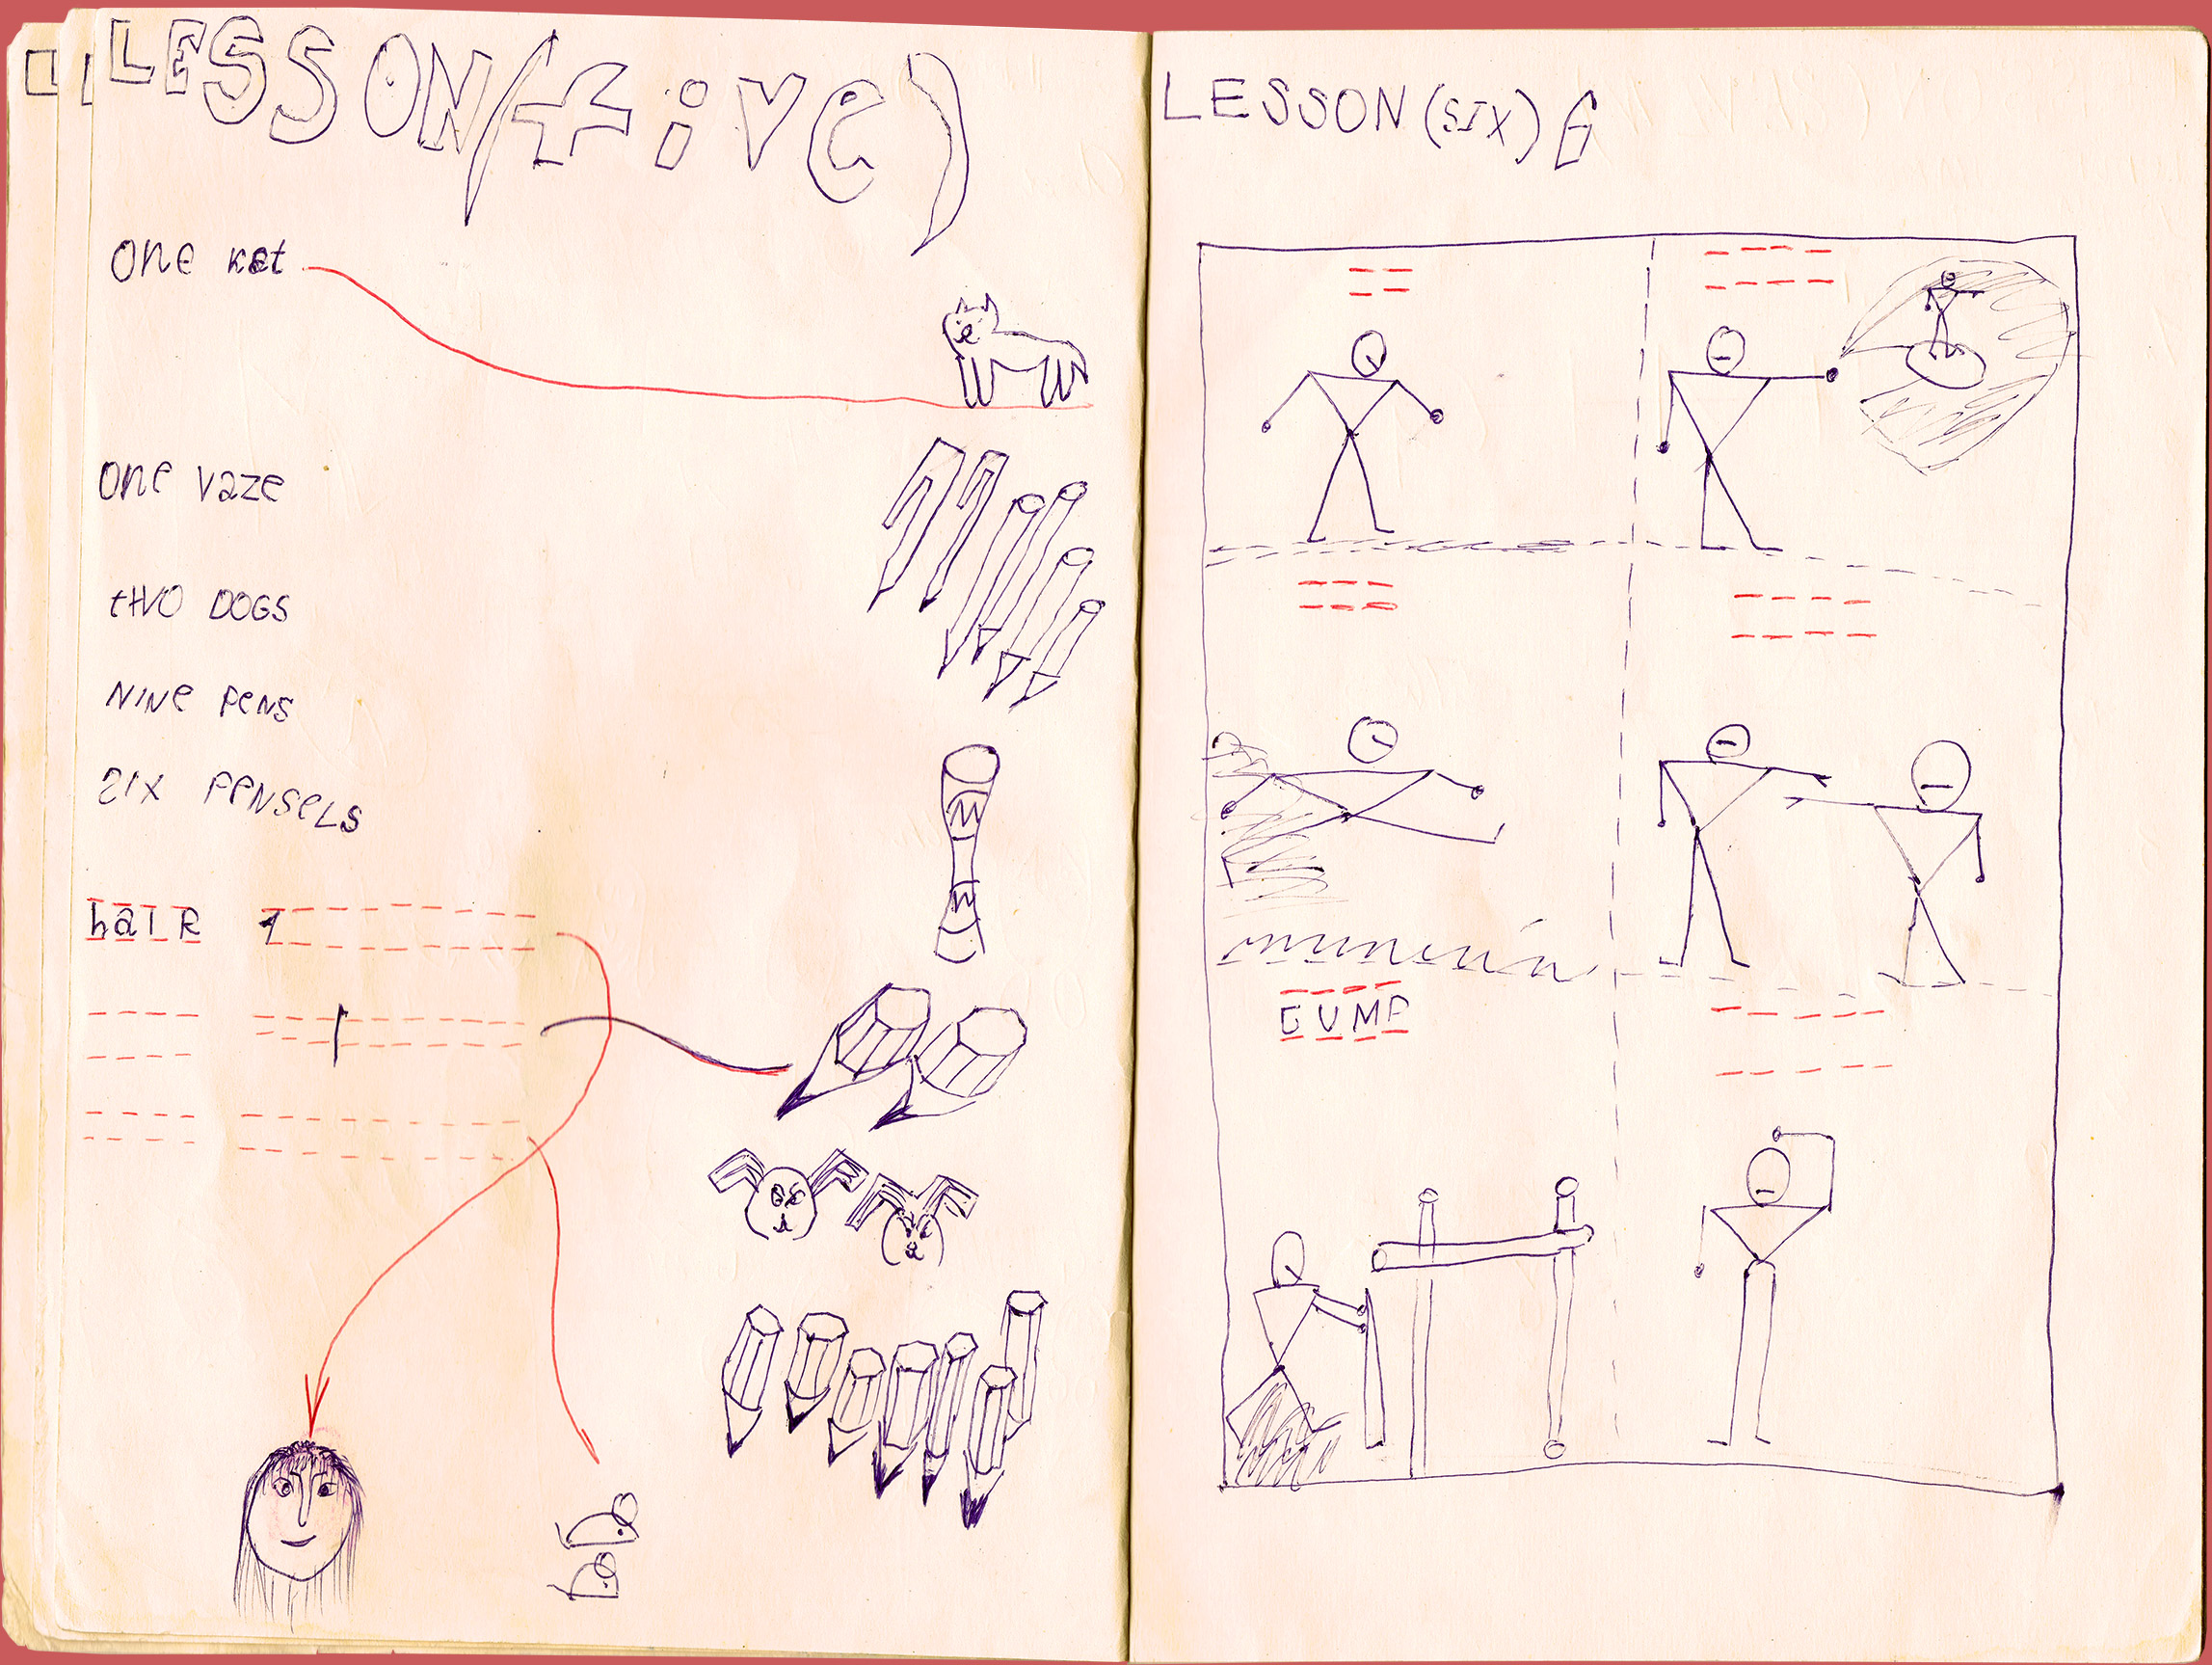 LESSON (five)
one kat
one vaze
tWO DOGS
NINe peNS
2IX PeNSeLS
haIR 1
LESSON (SIX) 6
GUMP